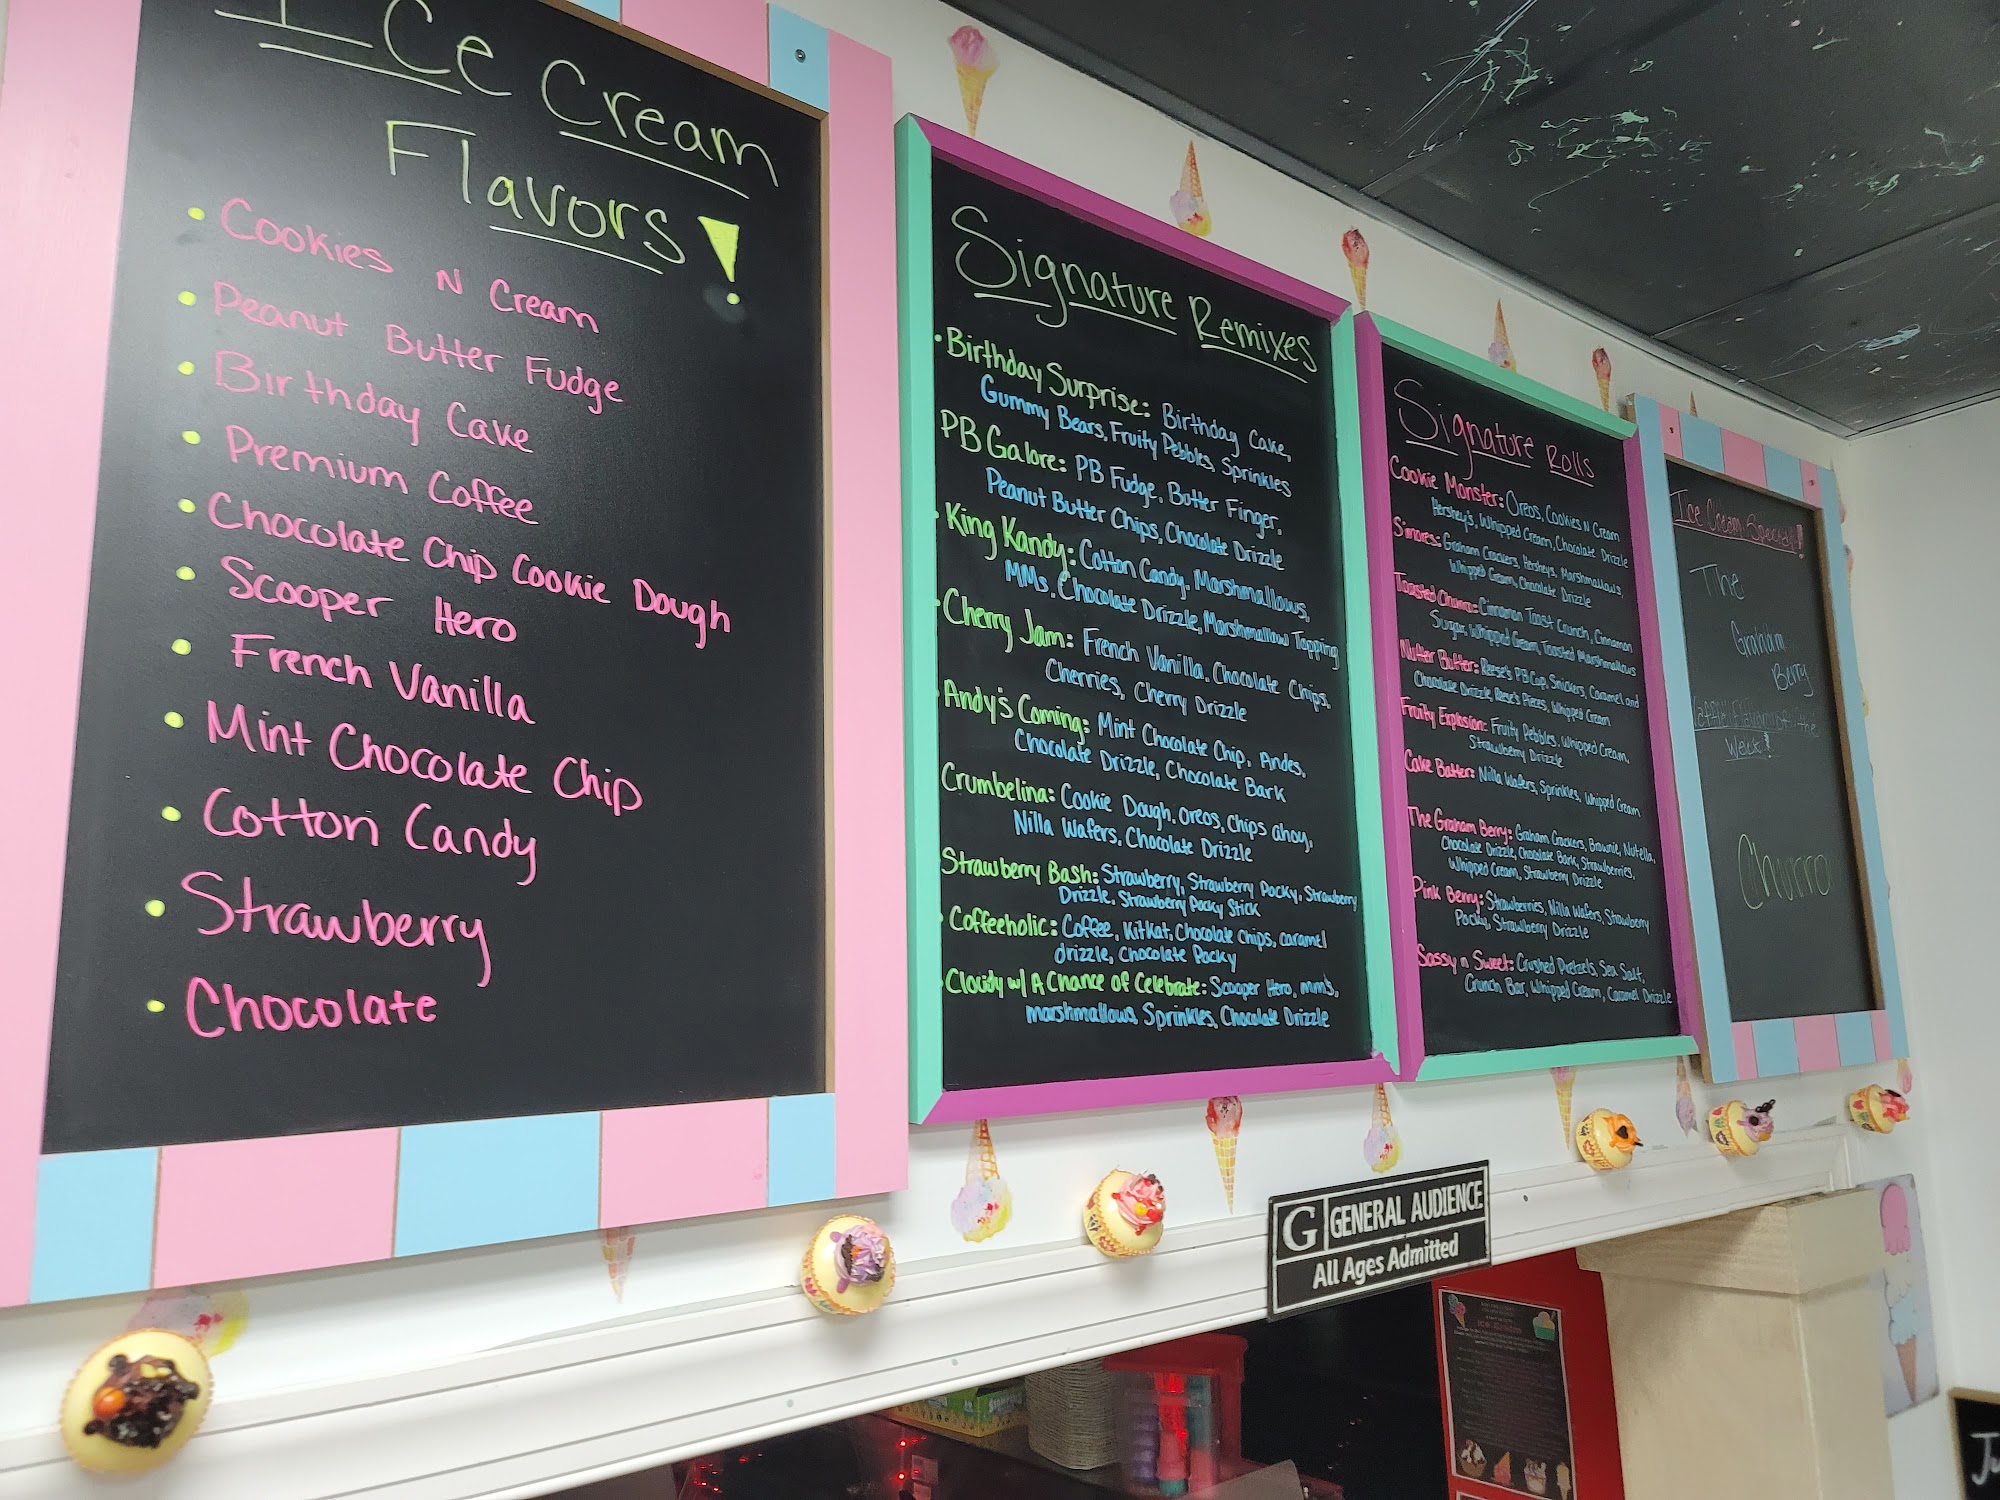 Ice Cream
Flavors!
• Cookies N Cream
• Peanut Butter Fudge
• Birthday Cake
• Premium Coffee
• Chocolate Chip Cookie Dough
• Scooper Hero
• French Vanilla
• Mint Chocolate Chip
• Cotton Candy
• Strawberry
• Chocolate
Signature Remixes
• Birthday Surprise: Birthday Cake,
Gummy Bears, Fruity Pebbles, Sprinkles
PB Galore: PB Fudge, Butter Finger,
Peanut Butter Chips, Chocolate Drizzle
• King Kandy: Cotton Candy, Marshmallows,
MMs, Chocolate Drizzle, Marshmallow Topping
• Cherry Jam: French Vanilla, Chocolate Chips,
Cherries, Cherry Drizzle
• Andy's Coming: Mint Chocolate Chip, Andes,
Chocolate Drizzle, Chocolate Bark
Crumbelina: Cookie Dough, Oreos, Chips ahoy,
Nilla Wafers, Chocolate Drizzle
Strawberry Bash: Strawberry, Strawberry Pocky, Strawberry
Drizzle, Strawberry Pocky Stick
• Coffeeholic: Coffee, KitKat, Chocolate Chips, caramel
drizzle, Chocolate Pocky
• Cloudy w/ A Chance of Celebrate: Scooper Hero, mm's,
marshmallows, Sprinkles, Chocolate Drizzle
Signature Rolls
Cookie Monster: Oreos, Cookies N Cream
Hershey's, Whipped Cream, Chocolate Drizzle
S'mores: Graham Crackers, Hersheys, Marshmallows,
Whipped Cream, Chocolate Drizzle
Toasted Churro: Cinnamon Toast Crunch, Cinnamon
Sugar, Whipped Cream, Toasted Marshmallows
Nutter Butter: Reese's PB Cup, Snickers, Caramel and
Chocolate Drizzle, Reese's Pieces, Whipped Cream
Fruity Explosion: Fruity Pebbles, Whipped Cream,
Strawberry Drizzle
Cake Batter: Nilla Wafers, Sprinkles, Whipped Cream
The Graham Berry: Graham Crackers, Brownie, Nutella,
Chocolate Drizzle, Chocolate Bark, Strawberries,
Whipped Cream, Strawberry Drizzle
Pink Berry: Strawberries, Nilla Wafers, Strawberry
Pocky, Strawberry Drizzle
Sassy n Sweet: Crushed Pretzels, Sea Salt,
Crunch Bar, Whipped Cream, Caramel Drizzle
Ice Cream Special!
The
Graham
Berry
Waffle Flavor of the
Week!
Churro
G GENERAL AUDIENCE
All Ages Admitted